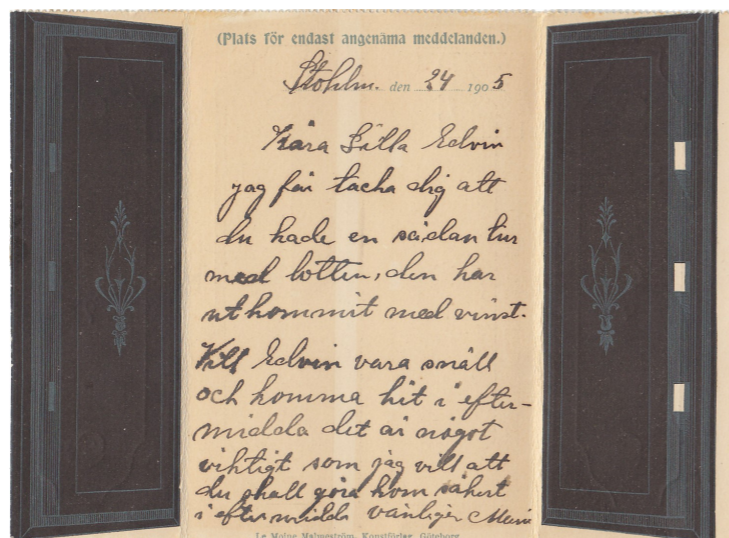 (Plats för endast angenäma meddelanden.)
Stohlm. den 24 1905
Kära Lilla Edvin
jag får tacka dig att
du hade en sådan tur
med lotten, den har
utkommit med vinst.
Vill Edvin vara snäll
och komma hit i efter-
midda det är något
viktigt som jag vill att
du skall göra kom säkert
i eftermidd vänligen
Le Moine Malmeström, Konstförlag, Göteborg.